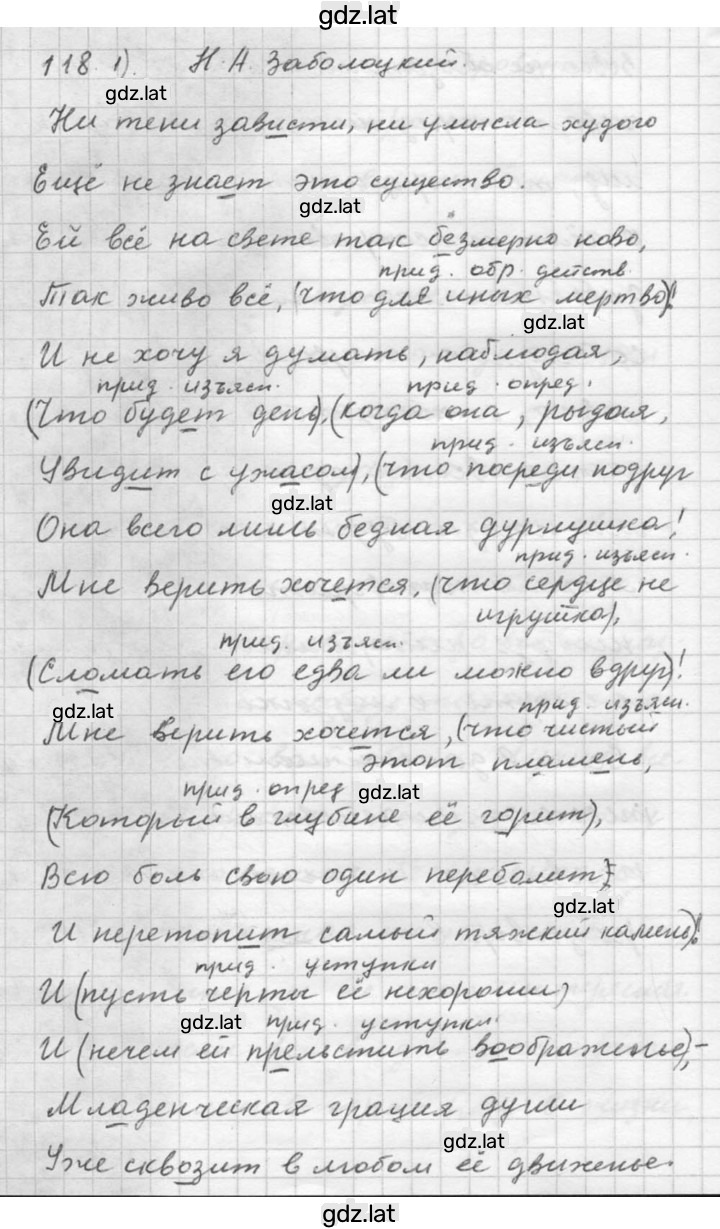 gdz.lat
118. 1). Н. А. Заболоцкий.
gdz.lat
Ни тени зависти, ни умысла худого
Ещё не знает это существо.
gdz.lat
Ей всё на свете так безмерно ново,
прид. обр. действ.
Так живо всё, (что для иных мертво)!
gdz.lat
И не хочу я думать, наблюдая,
прид. изъясн. прид. опред.
(Что будет день), (когда она, рыдая,
прид. изъясн.
Увидит с ужасом), (что посреди подруг
gdz.lat
Она всего лишь бедная дурнушка!
прид. изъясн.
Мне верить хочется, (что сердце не
игрушка),
прид. изъясн.
(Сломать его едва ли можно вдруг)!
gdz.lat
прид. изъясн.
Мне верить хочется, (что чистый
этот пламень,
прид. опред
gdz.lat
(Который в глубине её горит),
Всю боль свою один переболит,
gdz.lat
И перетопит самый тяжкий камень)!
прид. уступки
И (пусть черты её нехороши)
gdz.lat
прид. уступки.
И (нечем ей прельстить воображенье), -
Младенческая грация души
gdz.lat
Уже сквозит в любом её движенье.
gdz.lat